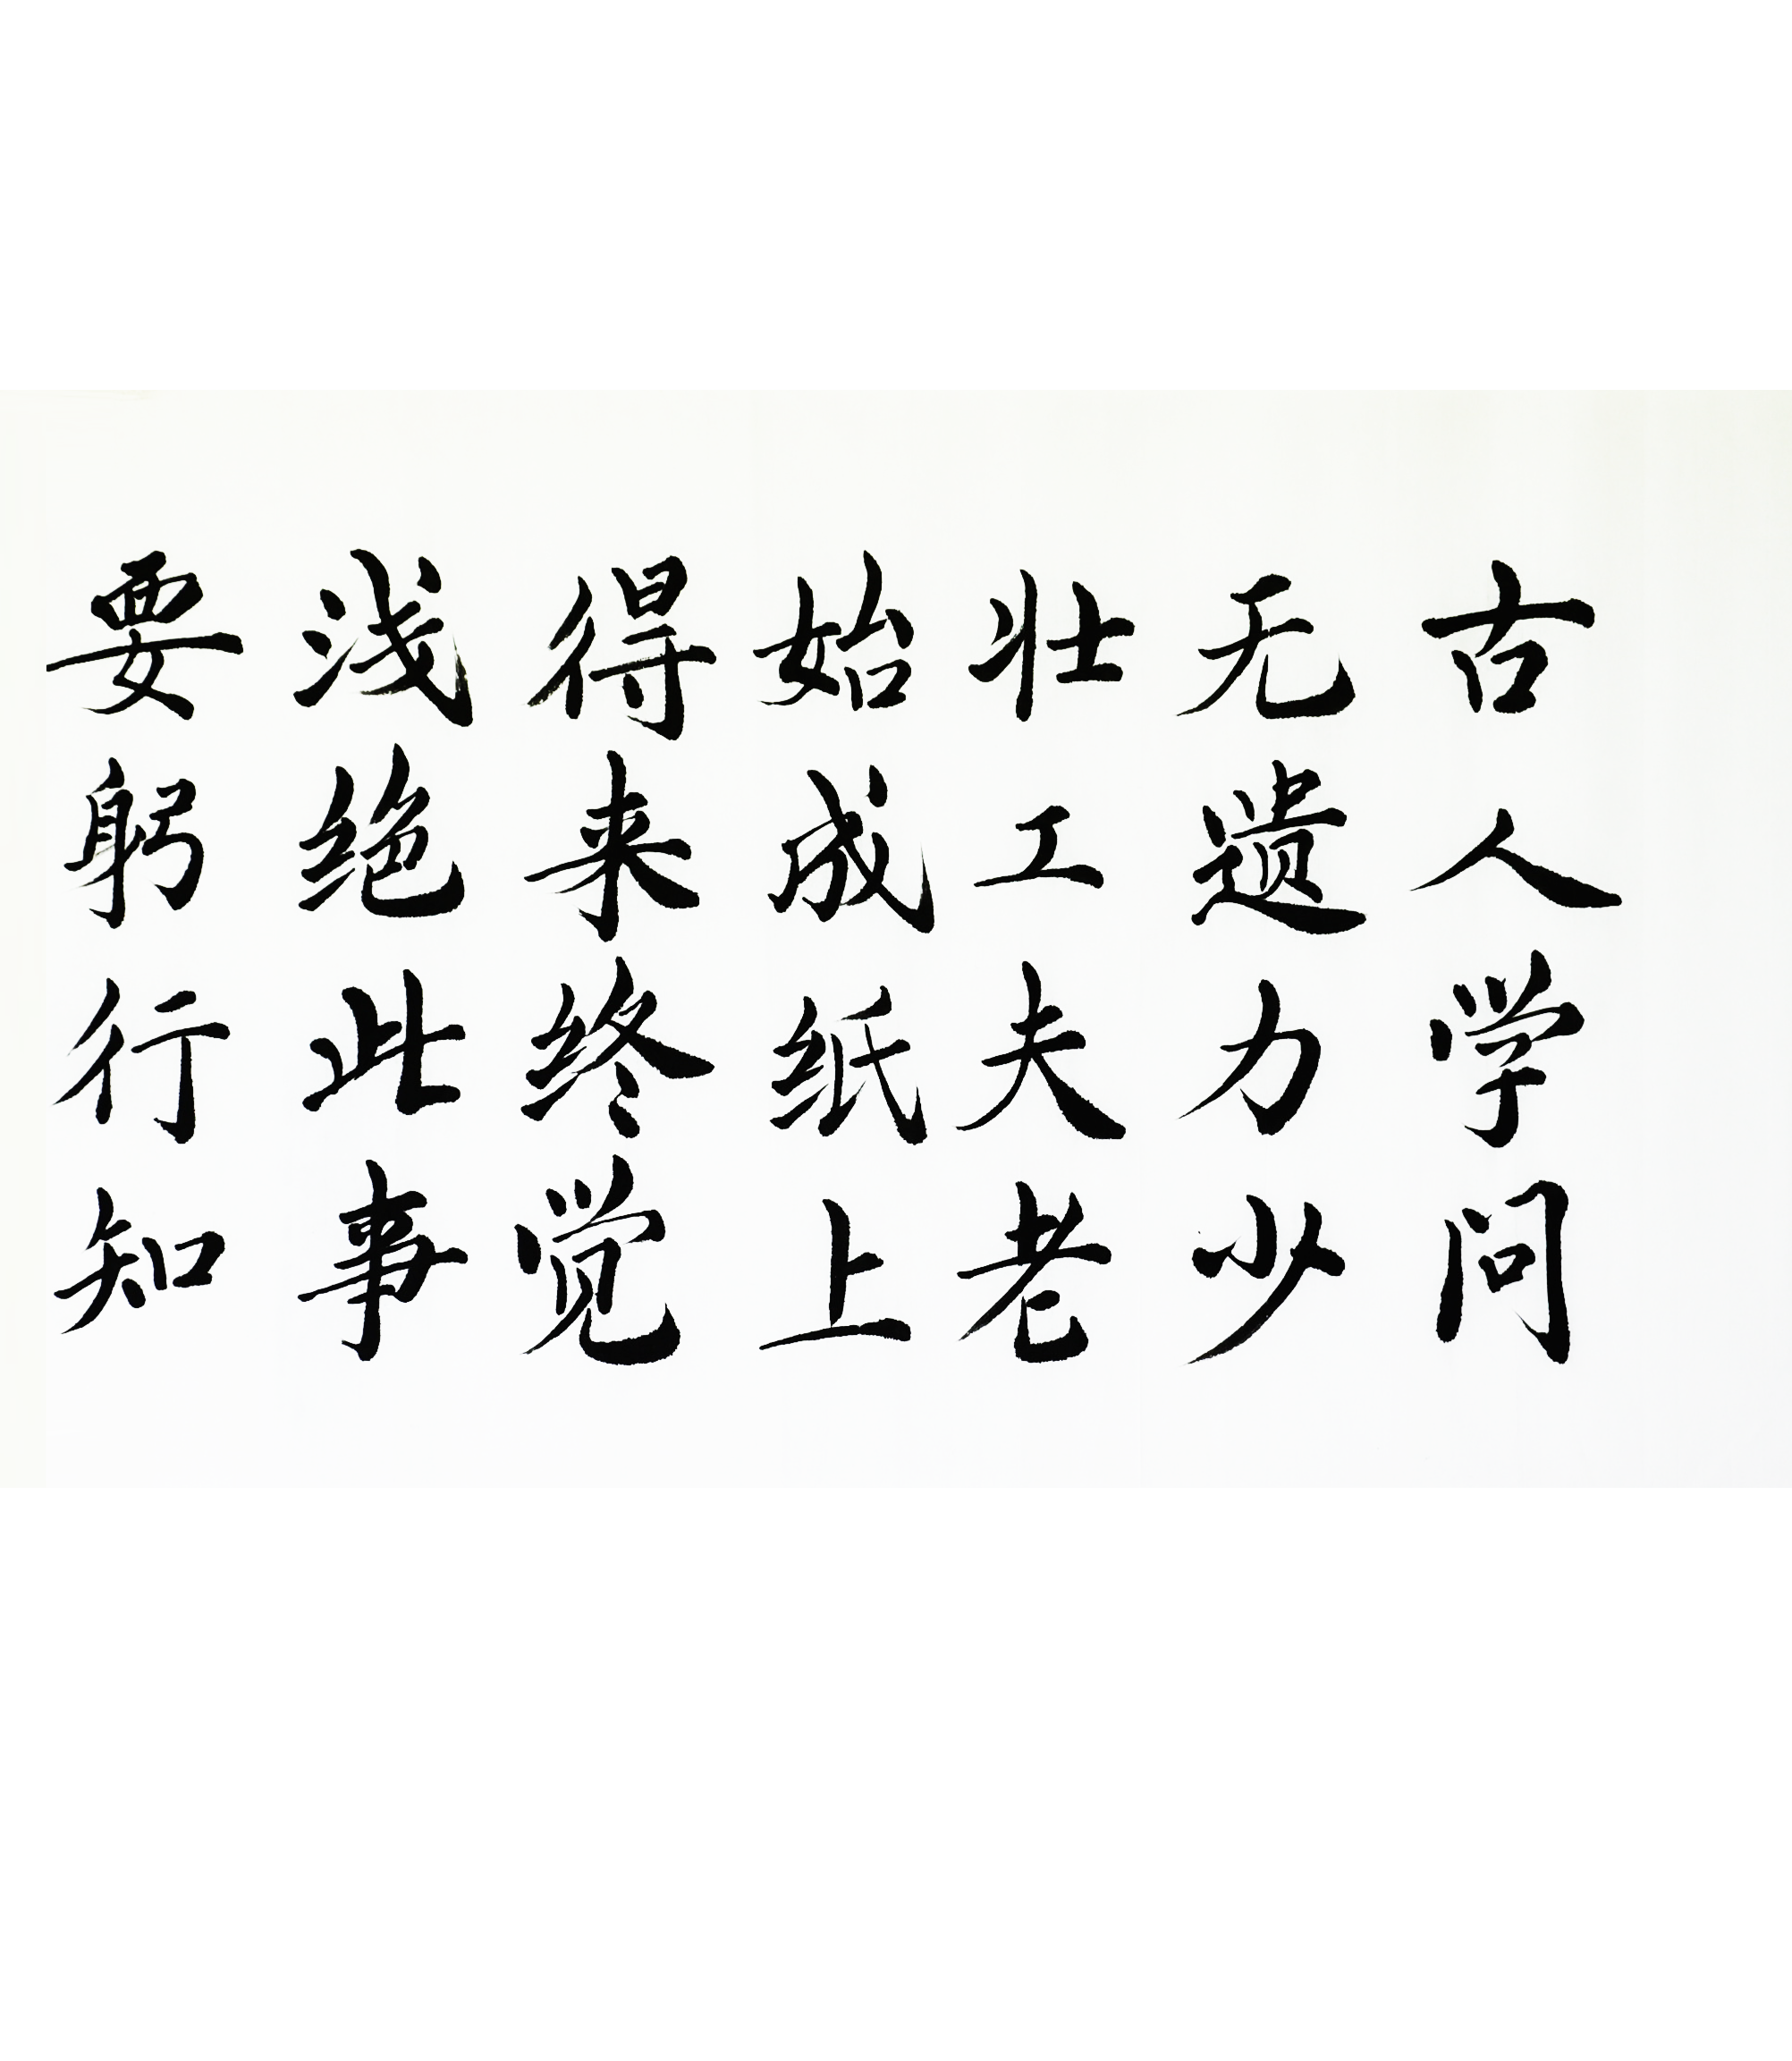 古人学问
无遗力少
壮工夫老
始成纸上
得来终觉
浅绝此事
要躬行知